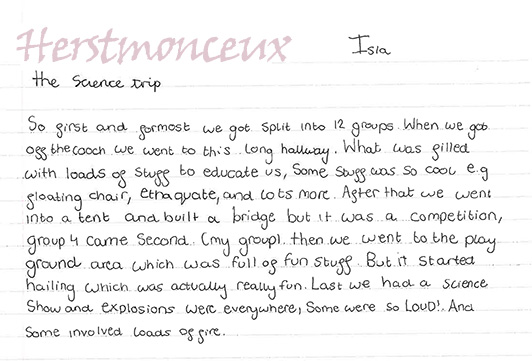 Herstmonceux
Isla
the Science trip
So first and formost we got split into 12 groups. When we got
off the coach we went to this long hallway. What was filled
with loads of stuff to educate us, Some stuff was so cool e.g
floating chair, ethquate, and lots more. After that we went
into a tent and built a bridge but it was a competition,
group 4 came Second. (my group). then we went to the play
ground area which was full of fun stuff. But it started
hailing which was actually really fun. Last we had a science
Show and explosions were everywhere, Some were so LOUD!. And
Some involved loads of fire.